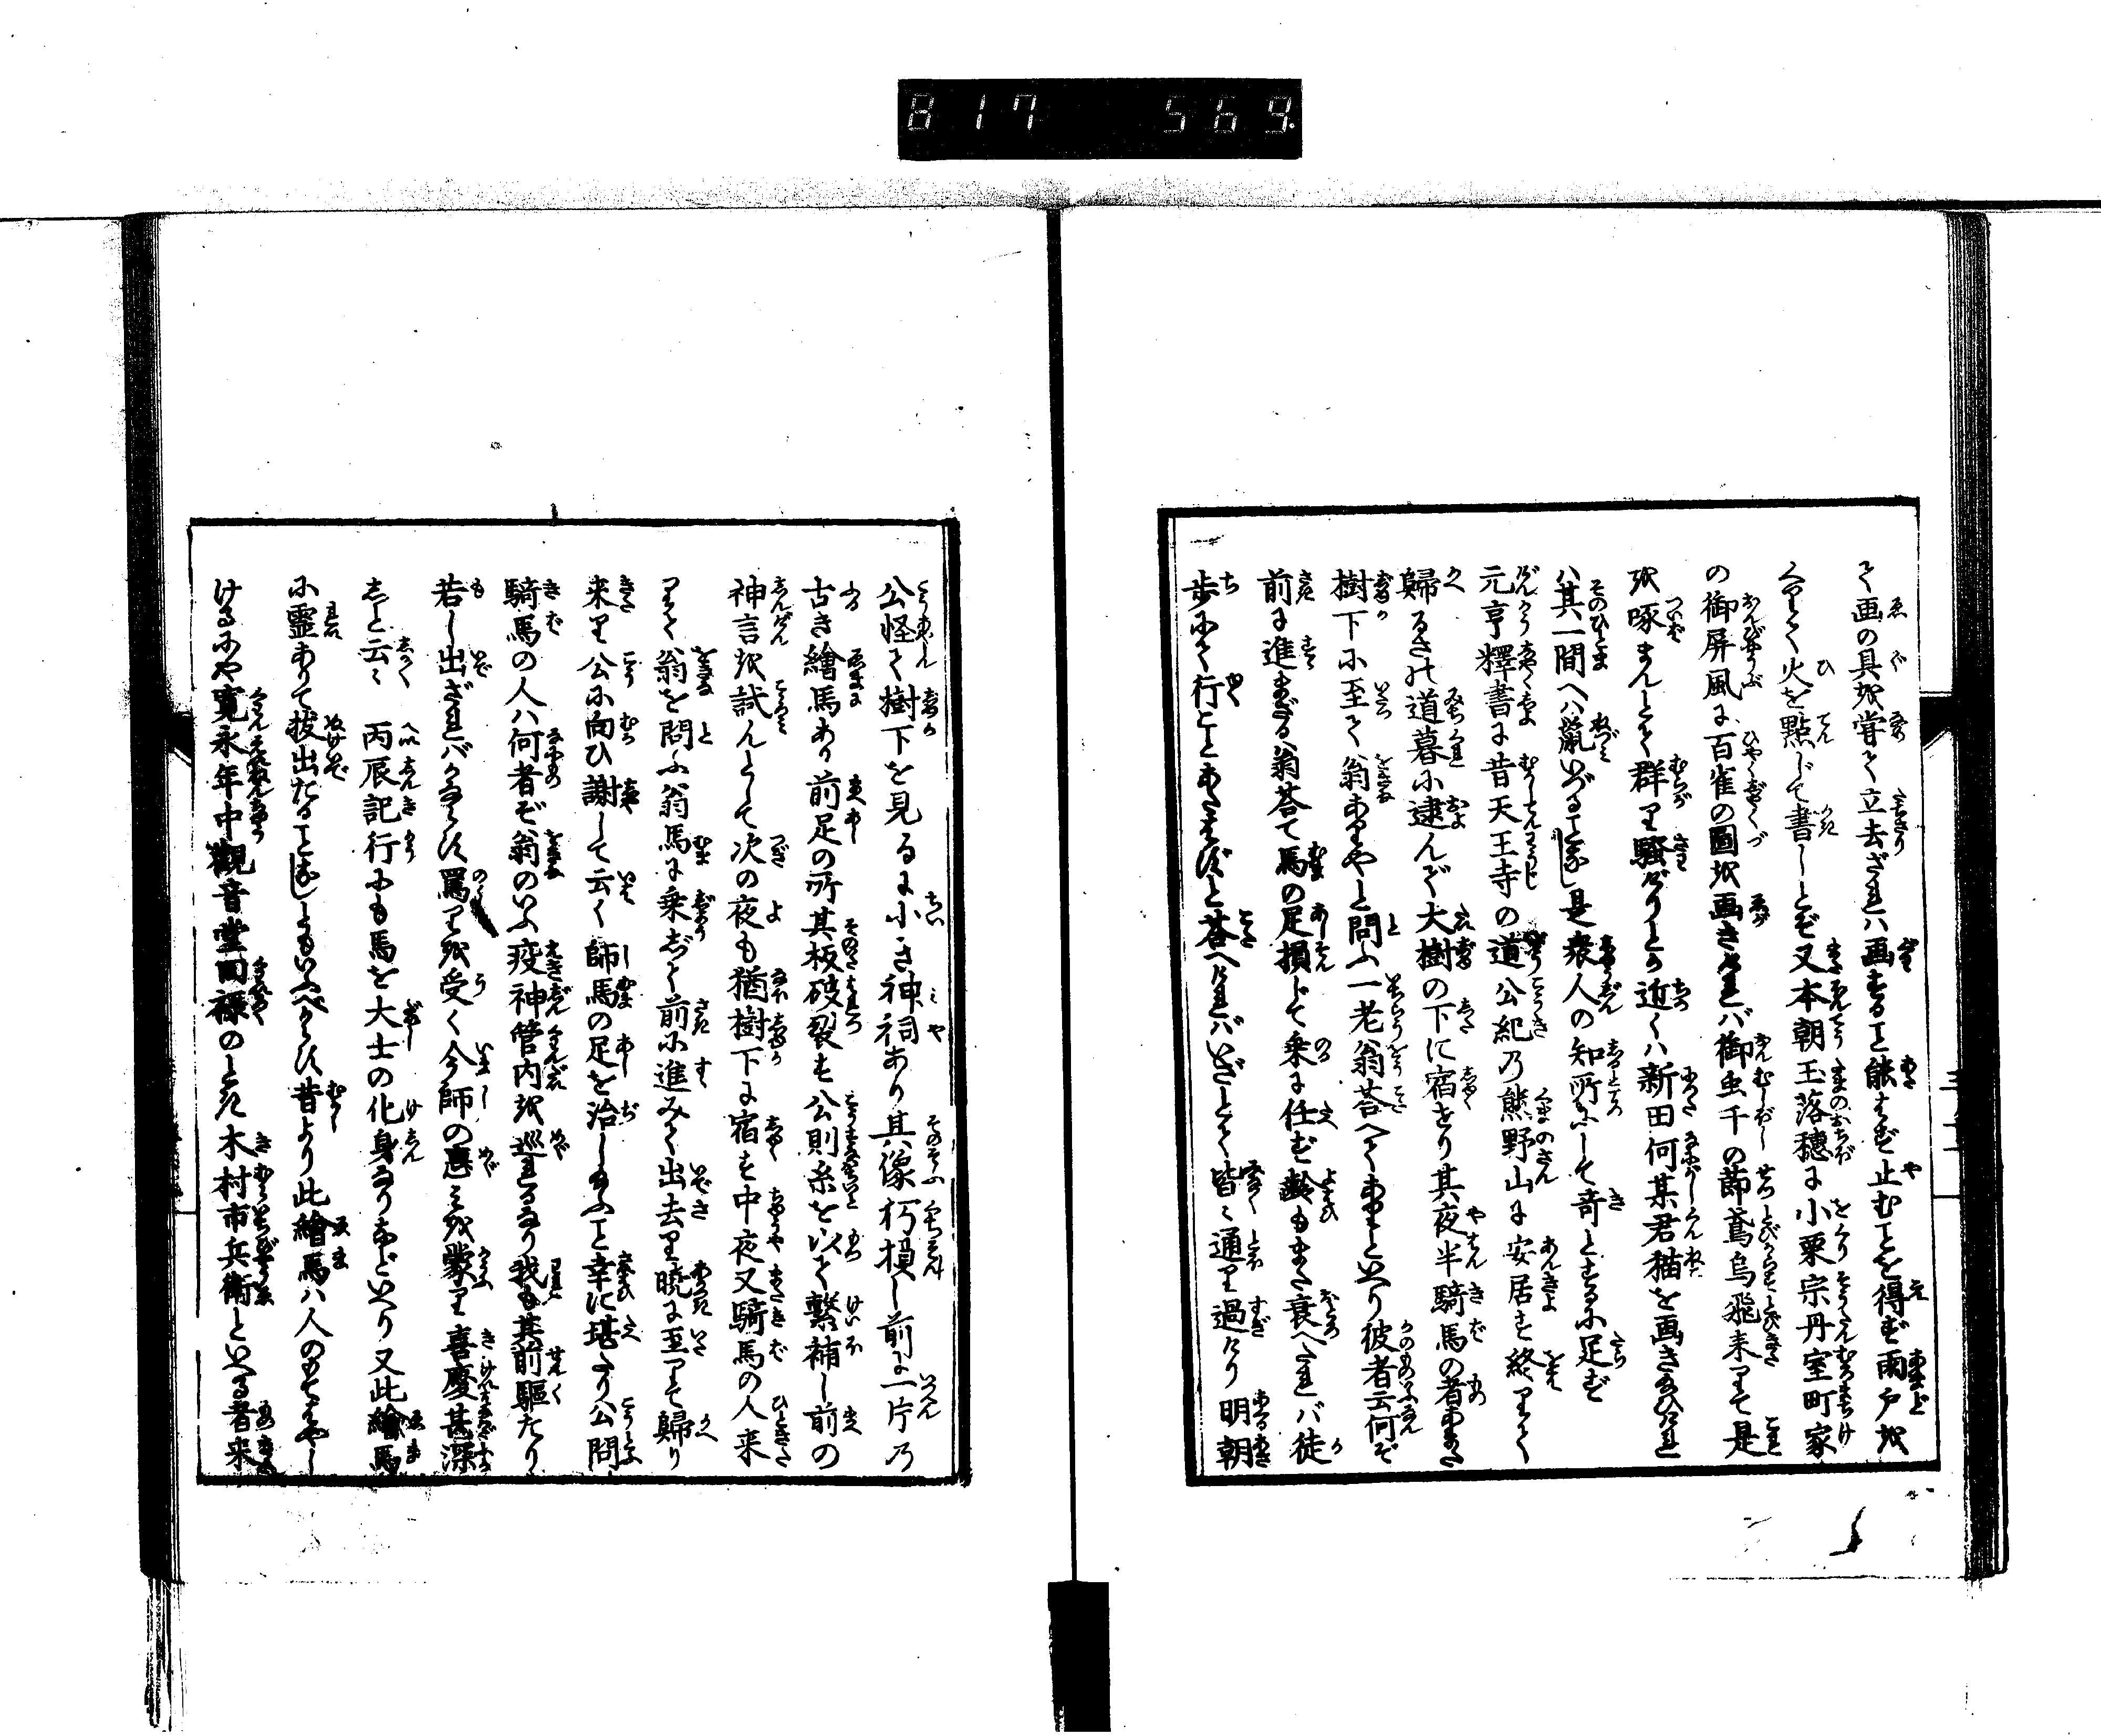 817 569.
て画の具を甞て立去ざれハ画すること能はず止むことを得ず雨戸を
くりて火を點じて書しとぞ又本朝玉落穂に小栗宗丹室町家
の御屏風に百雀の圖を画きけれバ御虫干の節鳶烏飛来りて是
を啄まんとて群り騒げりとか近くハ新田何某君猫を画き給ひけれ
ハ其一間へハ鼠いづることなし是衆人の知所にして竒とするに足ず
元亨釋書に昔天王寺の道公紀乃熊野山に安居を終りて
歸るさの道暮に逮んで大樹の下に宿せり其夜半騎馬の者あまた
樹下に至て翁ありやと問ふ一老翁荅へてありといへり彼者云何ぞ
前に進まざる翁荅て馬の足損じて乗に任ず齢もまた衰へたれバ徒
歩にて行ことあたはずと荅へけれバいざとて皆〻通り過けり明朝
公怪て樹下を見るに小さき神祠あり其像朽損し前に一片乃
古き繪馬あり前足の所其板破裂す公則糸を以て繫補し前の
神言を試んとして次の夜も猶樹下に宿す中夜又騎馬の人来
りて翁を問ふ翁馬に乗じて前に進みて出去り暁に至りて歸り
来り公に向ひ謝して云く師馬の足を治し給ふこと幸に堪たり公問
騎馬の人ハ何者ぞ翁のいふ疫神管内を巡れるなり我も其前駆たり
若し出ざれバかならず罵りを受く今師の惠みを蒙り喜慶甚深
しと云〻 丙辰記行にも馬を大士の化身なりなどいへり又此繪馬
に靈ありて抜出たることなしともいふべからず昔より此繪馬ハ人のもてはやし
けるにや寛永年中觀音堂回禄のとき木村市兵衛といへる者来